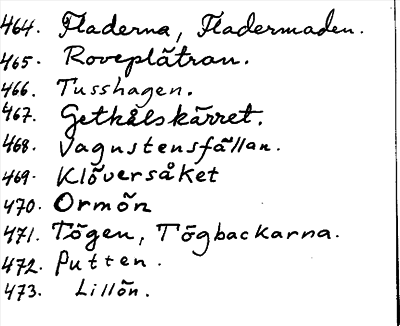 464. Fladerna, Fladermaden.
465. Roveplåtran.
466. Tusshagen.
467. Getkålskärret.
468. Vagnstensfällan.
469. Klöversåket
470. Ormön
471. Tögen, Tögbackarna.
472. Putten.
473. Lillön.